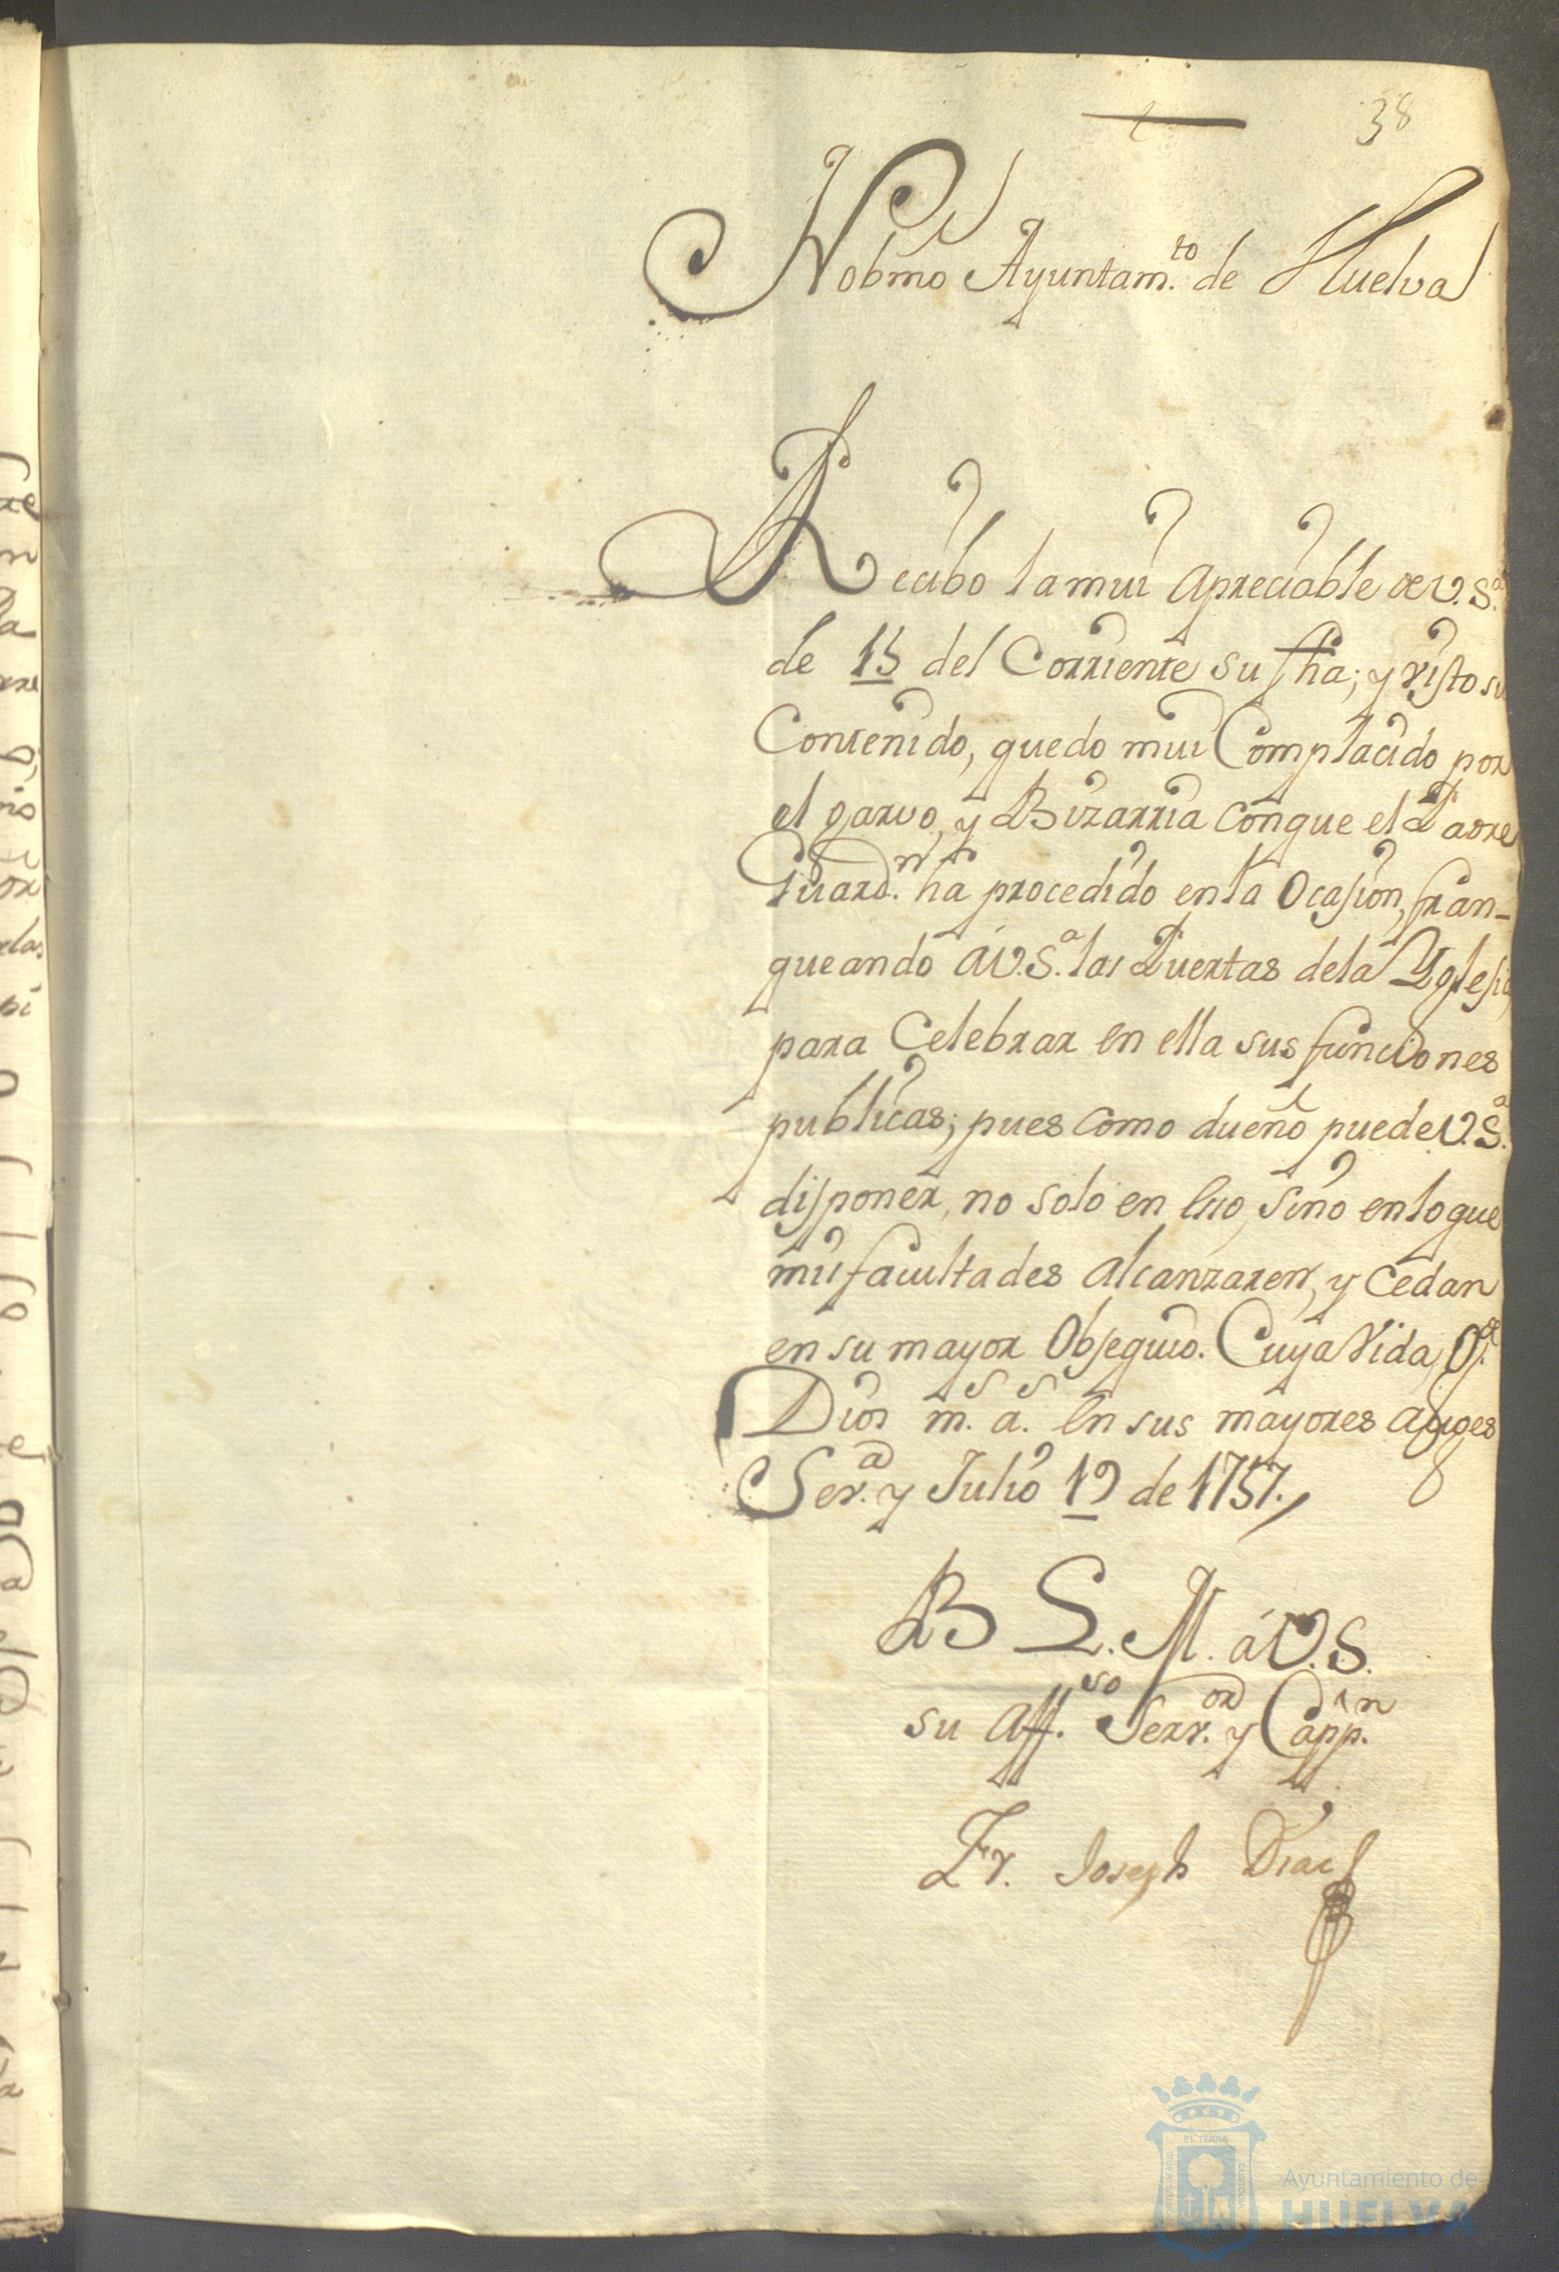 38
Nobmo Ayuntam.to de Huelva
Recibo la mui apreciable de V.S.a
de 15 del Corriente su fha; y visto su
Contenido, quedo mui Complacido por
el garvo, y Bizarria con que el Padre
Guard.n ha procedido en la Ocasion, fran-
queando á V.S.a las Puertas de la Yglesia
para Celebrar en ella sus funciones
publicas; pues como dueño puede V.S.a
disponer, no solo en esto, sino en lo que
mis facultades alcanzaren, y cedan
en su mayor Obsequio. Cuya Vida, g.e
Dios m.s a.s en sus mayores auges
Sev.a y Julio 19 de 1757.
B L. M. á V.S.
su Aff.so Serv.or y Capp.n
Fr. Joseph Diaz
Ayuntamiento de
HUELVA